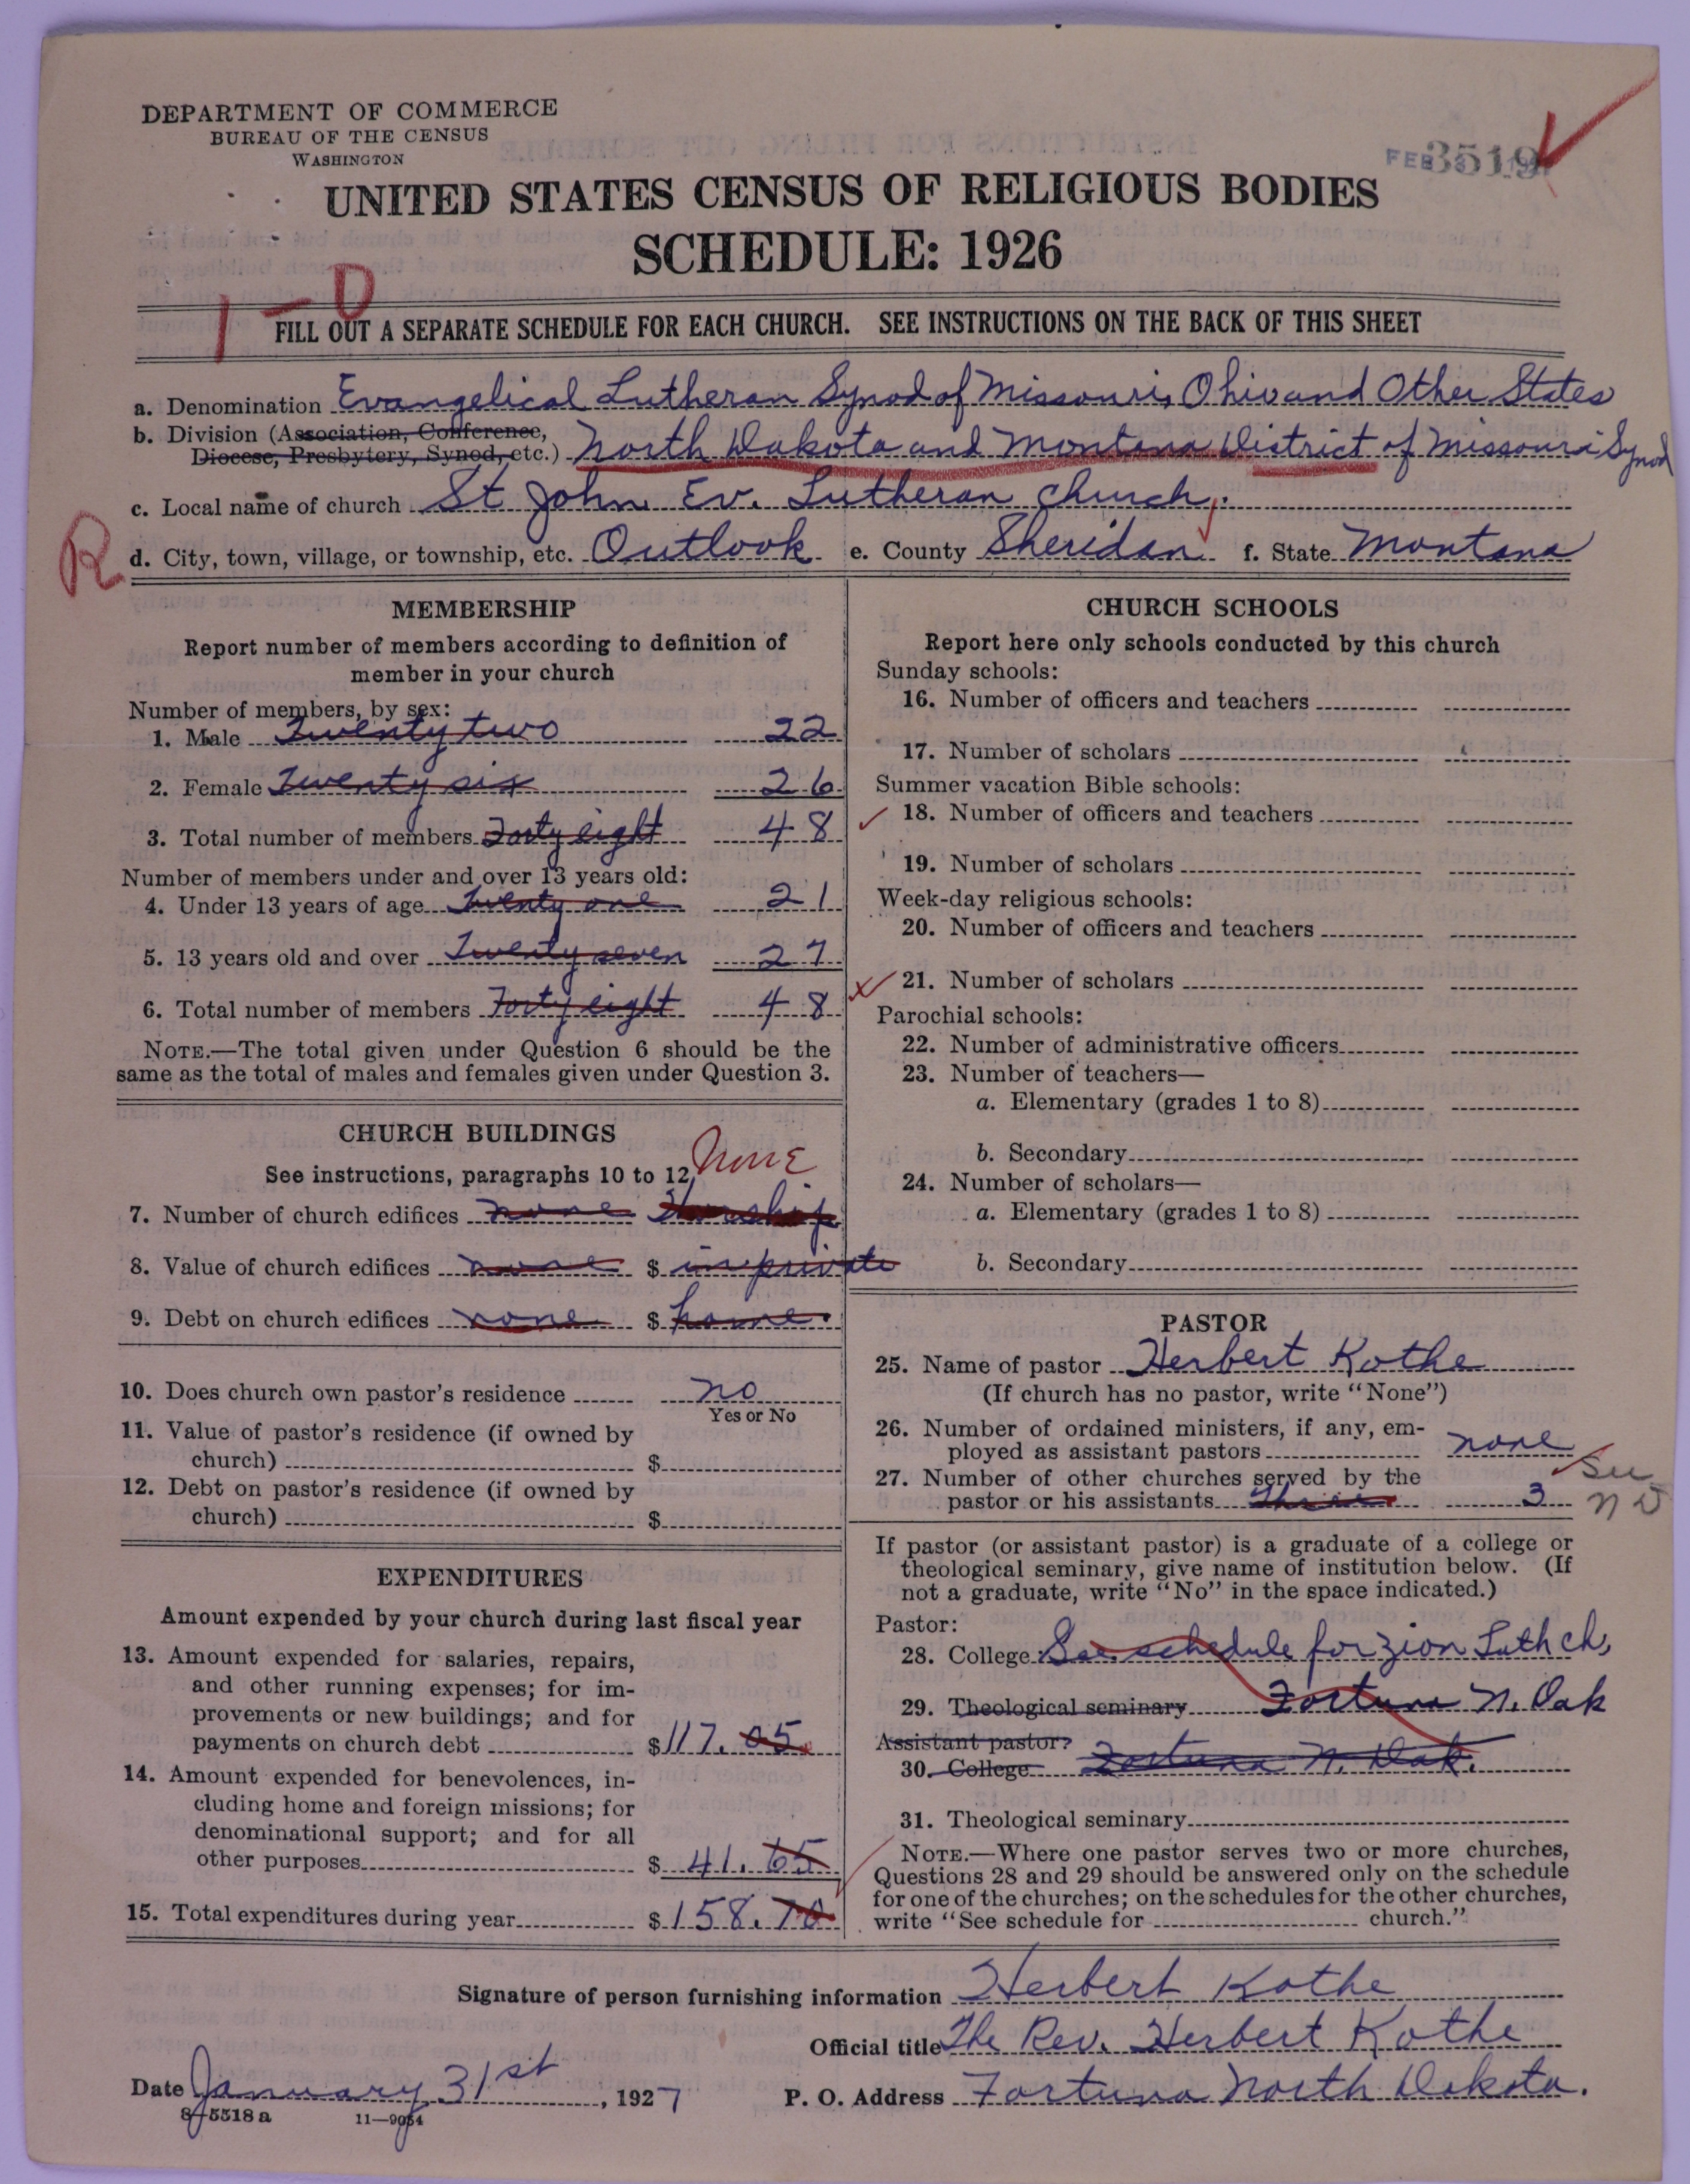 DEPARTMENT OF COMMERCE
BUREAU OF THE CENSUS
WASHINGTON
FEB 3519
UNITED STATES CENSUS OF RELIGIOUS BODIES
SCHEDULE: 1926
1-D
FILL OUT A SEPARATE SCHEDULE FOR EACH CHURCH. SEE INSTRUCTIONS ON THE BACK OF THIS SHEET
a. Denomination Evangelical Lutheran Synod of Missouri, Ohio and Other States
b. Division (Association, Conference,
Diocese, Presbytery, Synod, etc.) North Dakota and Montana District of Missouri Synod
c. Local name of church St John Ev. Lutheran Church.
R
d. City, town, village, or township, etc. Outlook e. County Sheridan f. State Montana
MEMBERSHIP
Report number of members according to definition of
member in your church
Number of members, by sex:
1. Male Twenty two 22
2. Female Twenty six 26
3. Total number of members Forty eight 48
Number of members under and over 13 years old:
4. Under 13 years of age Twenty one 21
5. 13 years old and over Twenty seven 27
6. Total number of members Forty eight 48
NOTE.—The total given under Question 6 should be the
same as the total of males and females given under Question 3.
CHURCH BUILDINGS
See instructions, paragraphs 10 to 12 None
7. Number of church edifices none Worship
8. Value of church edifices none $ in private
9. Debt on church edifices none $ home.
10. Does church own pastor's residence no
Yes or No
11. Value of pastor's residence (if owned by
church) $
12. Debt on pastor's residence (if owned by
church) $
EXPENDITURES
Amount expended by your church during last fiscal year
13. Amount expended for salaries, repairs,
and other running expenses; for im-
provements or new buildings; and for
payments on church debt $117.05
14. Amount expended for benevolences, in-
cluding home and foreign missions; for
denominational support; and for all
other purposes $ 41.65
15. Total expenditures during year $158.70
CHURCH SCHOOLS
Report here only schools conducted by this church
Sunday schools:
16. Number of officers and teachers
17. Number of scholars
Summer vacation Bible schools:
18. Number of officers and teachers
19. Number of scholars
Week-day religious schools:
20. Number of officers and teachers
21. Number of scholars
Parochial schools:
22. Number of administrative officers
23. Number of teachers—
a. Elementary (grades 1 to 8)
b. Secondary
24. Number of scholars—
a. Elementary (grades 1 to 8)
b. Secondary
PASTOR
25. Name of pastor Herbert Kothe
(If church has no pastor, write "None")
26. Number of ordained ministers, if any, em-
ployed as assistant pastors none
27. Number of other churches served by the
pastor or his assistants Three 3
See
ND
If pastor (or assistant pastor) is a graduate of a college or
theological seminary, give name of institution below. (If
not a graduate, write "No" in the space indicated.)
Pastor:
28. College See schedule for Zion Luth ch,
29. Theological seminary Fortuna N. Dak
Assistant pastor:
30. College Fortuna N. Dak.
31. Theological seminary
NOTE.—Where one pastor serves two or more churches,
Questions 28 and 29 should be answered only on the schedule
for one of the churches; on the schedules for the other churches,
write "See schedule for church."
Signature of person furnishing information Herbert Kothe
Official title The Rev. Herbert Kothe
Date January 31st, 1927 P. O. Address Fortuna North Dakota.
8-5518a 11-9054